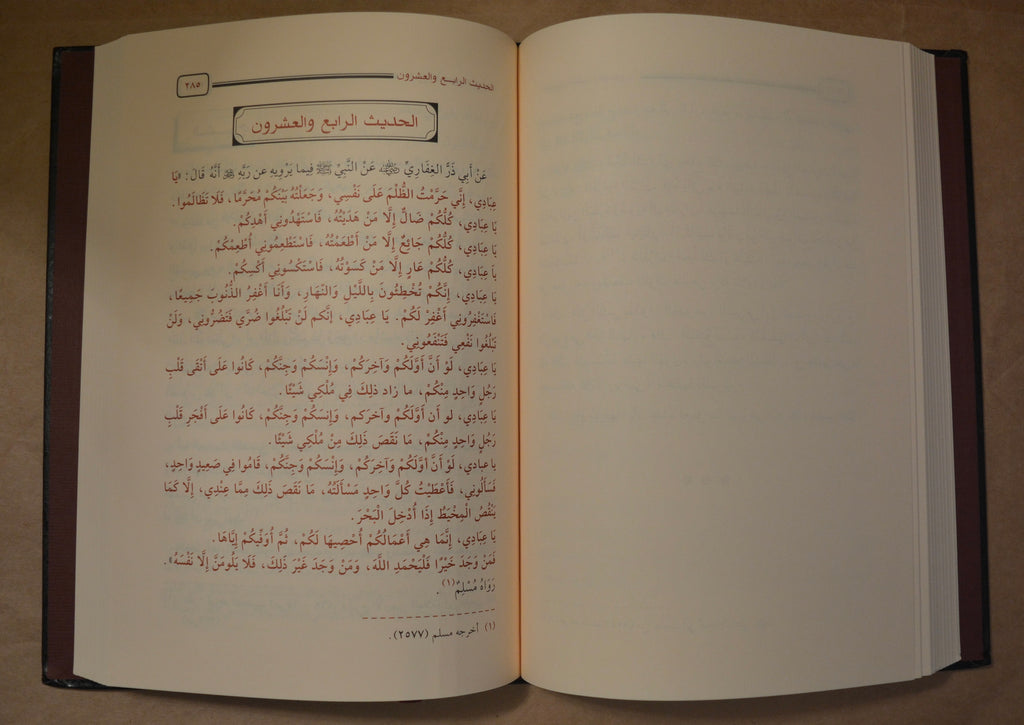 الحديث الرابع والعشرون
٢٨٥
الحديث الرابع والعشرون
عَنْ أَبِي ذَرٍّ الغِفَارِيِّ ﵁ عَنْ النَّبِيِّ ﷺ فِيما يَرْوِيهِ عن رَبِّهِ ﷿ أَنَّهُ قَالَ: «يَا
عِبَادِي، إِنِّي حَرَّمْتُ الظُّلْمَ عَلَى نَفْسِي، وَجَعَلْتُهُ بَيْنَكُمْ مُحَرَّمًا، فَلَا تَظَالَمُوا.
يَا عِبَادِي، كُلُّكُمْ ضَالٌّ إِلَّا مَنْ هَدَيْتُهُ، فَاسْتَهْدُونِي أَهْدِكُمْ.
يَا عِبَادِي، كُلُّكُمْ جَائِعٌ إِلَّا مَنْ أَطْعَمْتُهُ، فَاسْتَطْعِمُونِي أُطْعِمْكُمْ.
يَا عِبَادِي، كُلُّكُمْ عَارٍ إِلَّا مَنْ كَسَوْتُهُ، فَاسْتَكْسُونِي أَكْسِكُمْ.
يَا عِبَادِي، إِنَّكُمْ تُخْطِئُونَ بِاللَّيْلِ وَالنَّهَارِ، وَأَنَا أَغْفِرُ الذُّنُوبَ جَمِيعًا،
فَاسْتَغْفِرُونِي أَغْفِرْ لَكُمْ. يَا عِبَادِي، إِنَّكم لَنْ تَبْلُغُوا ضُرِّي فَتَضُرُّونِي، وَلَنْ
تَبْلُغُوا نَفْعِي فَتَنْفَعُونِي.
يَا عِبَادِي، لَوْ أَنَّ أَوَّلَكُمْ وَآخِرَكُمْ، وَإِنْسَكُمْ وَجِنَّكُمْ، كَانُوا عَلَى أَتْقَى قَلْبِ
رَجُلٍ وَاحِدٍ مِنْكُمْ، ما زاد ذلِكَ فِي مُلْكِي شَيْئًا.
يَا عِبَادِي، لو أَن أَوَّلَكُمْ وآخركم، وَإِنسَكُمْ وَجِنَّكُمْ، كَانُوا عَلَى أَفْجَرِ قَلْبِ
رَجُلٍ وَاحِدٍ مِنْكُمْ، مَا نَقَصَ ذَلِكَ مِنْ مُلْكِي شَيْئًا.
يا عبادي، لَوْ أَنَّ أوَّلَكُمْ وَآخِرَكُمْ، وَإِنْسَكُمْ وَجِنَّكُمْ، قَامُوا فِي صَعِيدٍ وَاحِدٍ،
فَسَأَلُونِي، فَأَعْطَيْتُ كُلَّ وَاحِدٍ مَسْأَلَتَهُ، مَا نَقَصَ ذَلِكَ مِمَّا عِنْدِي، إِلَّا كَمَا
يَنْقُصُ الْمِخْيَطُ إِذَا أُدْخِلَ الْبَحْرَ.
يَا عِبَادِي، إِنَّمَا هِي أَعْمَالُكُمْ أُحْصِيهَا لَكُمْ، ثُمَّ أُوَفِّيكُمْ إِيَّاهَا.
فَمَنْ وَجَدَ خَيْرًا فَلْيَحْمَدِ اللَّهَ، وَمَنْ وَجَدَ غَيْرَ ذَلِكَ، فَلَا يَلُومَنَّ إِلَّا نَفْسَهُ».
رَوَاهُ مُسْلِمٌ(١).
(١) أخرجه مسلم (٢٥٧٧).